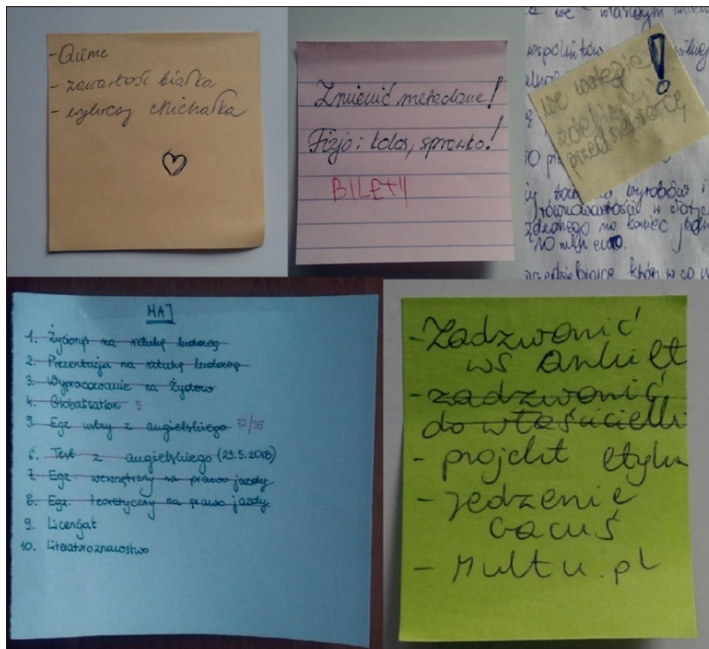 - zawartość białka
- wykresy Michałka
Zmienić metadane!
Fizjo i kolos, sprawko!
BILETY
we wstępie
zdefiniować
przedsiębiorcę
!
wyrobów i
równowartości w złotych
na koniec
10 mln euro.
MAJ
1. Życiorys na sztukę ludową
2. Prezentacja na sztukę ludową
3. Wypracowanie na Żydów
4. Globalisation 5
5. Egz ustny z angielskiego 32/35
6. Test z angielskiego (29.5.2018)
7. Egz. wewnętrzny na prawo jazdy
8. Egz. teoretyczny na prawo jazdy
9. Licencjat
10. Literaturoznawstwo
- Zadzwonić
ws ankiet
- zadzwonić
do właścicielki
- projekt etyka
- jedzenie
Gacuś
- Multu.pl